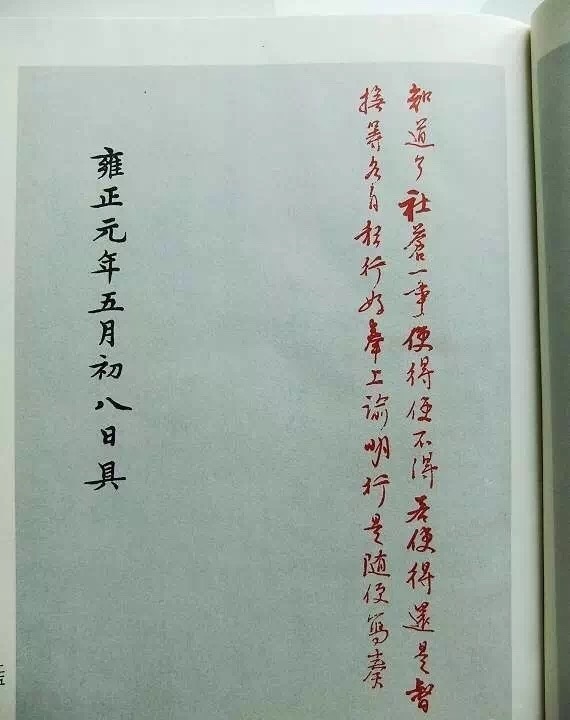 知道了社蒼一事便得便不得若便得還是督
撫等各自穏行好奉上諭明行是隨便寫奏
雍正元年五月初八日具